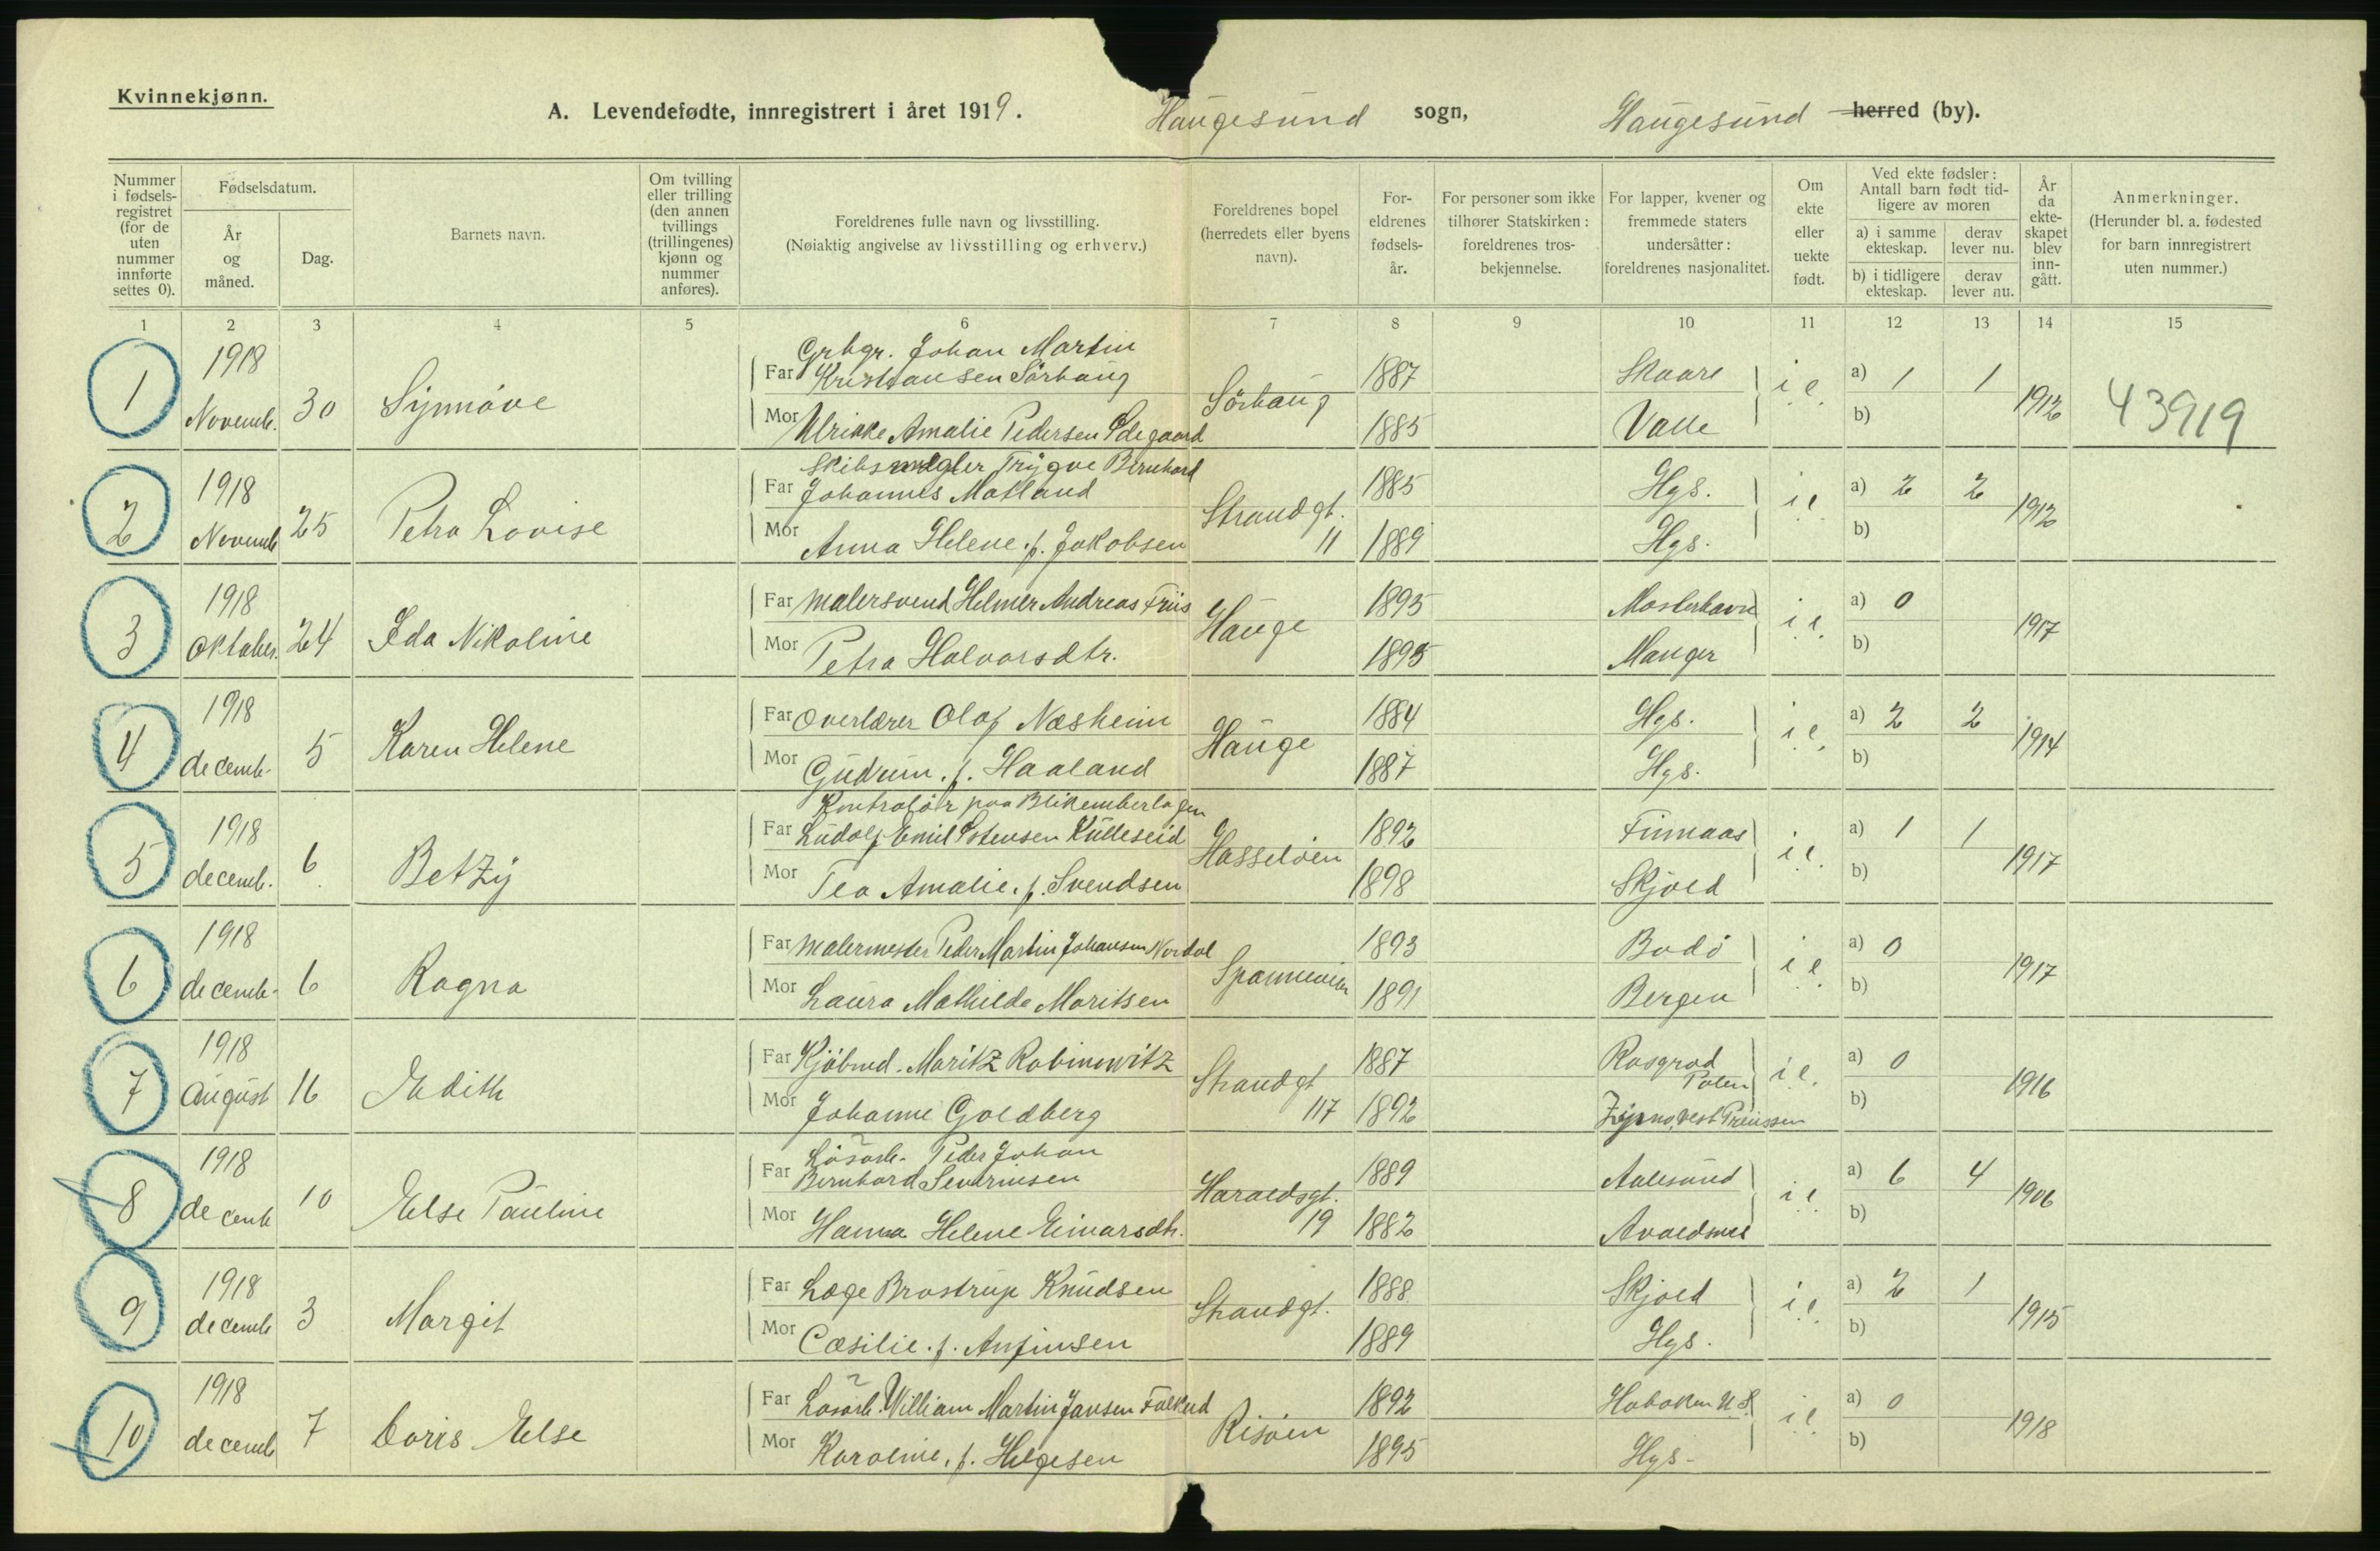 Kvinnekjønn.
A. Levendefødte, innregistrert i året 1919. Haugesund sogn, Haugesund herred (by).
Nummer i fødsels-registret (for de uten nummer innførte settes 0).
Fødselsdatum.
År og måned.
Dag.
Barnets navn.
Om tvilling eller trilling (den annen tvillings (trillingenes) kjønn og nummer anføres).
Foreldrenes fulle navn og livsstilling.
(Nøiaktig angivelse av livsstilling og erhverv.)
Foreldrenes bopel (herredets eller byens navn).
For-eldrenes fødsels-år.
For personer som ikke tilhører Statskirken: foreldrenes tros-bekjennelse.
For lapper, kvener og fremmede staters undersåtter: foreldrenes nasjonalitet.
Om ekte eller uekte født.
Ved ekte fødsler: Antall barn født tid-ligere av moren
a) i samme ekteskap.
derav lever nu.
b) i tidligere ekteskap.
derav lever nu.
År da ekte-skapet blev inn-gått.
Anmerkninger.
(Herunder bl. a. fødested for barn innregistrert uten nummer.)
1 2 3 4 5 6 7 8 9 10 11 12 13 14 15
1 1918 Novemb. 30 Synnöve
Grbgr. Johan Martin
Far Kristiansen Sörhaug Sörhaug 1887 Skaare i.e. a) 1 1 1912 43919
Mor Ulrikke Amalie Pedersen Ödegaard 1885 Valle b)
2 1918 Novemb 25 Petra Lovise
Skibsmegler Trygve Bernhard
Far Johannes Matland Strandgt. 11 1885 Hgs. i.e. a) 2 2 1912
Mor Anna Helene. f. Jakobsen 1889 Hgs. b)
3 1918 Oktober. 24 Ida Nikoline
Far Malersvend Helmer Andreas Friis Hauge 1895 Mosterhavn i.e. a) 0 1917
Mor Petra Halvorsdtr. 1895 Manger b)
4 1918 decemb. 5 Karen Helene
Far Overlærer Olaf Næsheim Hauge 1884 Hgs. i.e. a) 2 2 1914
Mor Gudrun. f. Haaland 1887 Hgs. b)
5 1918 decemb. 6 Betzy
Kontrolör paa
Far Ludolf Emil Ostensen Kulleseid Hasselöen 1892 Finnaas i.e. a) 1 1 1917
Mor Tea Amalie. f. Svendsen 1898 Skjold b)
6 1918 decemb. 6 Ragna
Far Malermester Peder Martin Johansen Nordal 1893 Bodö i.e. a) 0 1917
Mor Laura Mathilde Moritsen 1891 Bergen b)
7 1918 August 16 Edith
Far Kjöbmd. Moritz Rabinowitz Strandgt 117 1887 Rosgrod Polen i.e. a) 0 1916
Mor Johanne Goldberg 1892 Vest Preussen b)
8 1918 decemb 10 Else Pauline
Lösarb. Peder Johan
Far Bernhard Severinsen Haraldsgt. 19 1889 Aalesund i.e. a) 6 4 1906
Mor Hanna Helene Einarsdtr. 1882 Avaldsnes b)
9 1918 decemb 3 Margit
Far Læge Brostrup Knudsen Strandgt. 1888 Skjold i.e. a) 2 1 1915
Mor Cæsilie. f. Anfinsen 1889 Hgs. b)
10 1918 decemb 7 Doris Else
Far Lösarb. William Martin Jansen Falkeid Risöen 1892 Hoboken U.S. i.e. a) 0 1918
Mor Karoline. f. Helgesen 1895 Hgs. b)